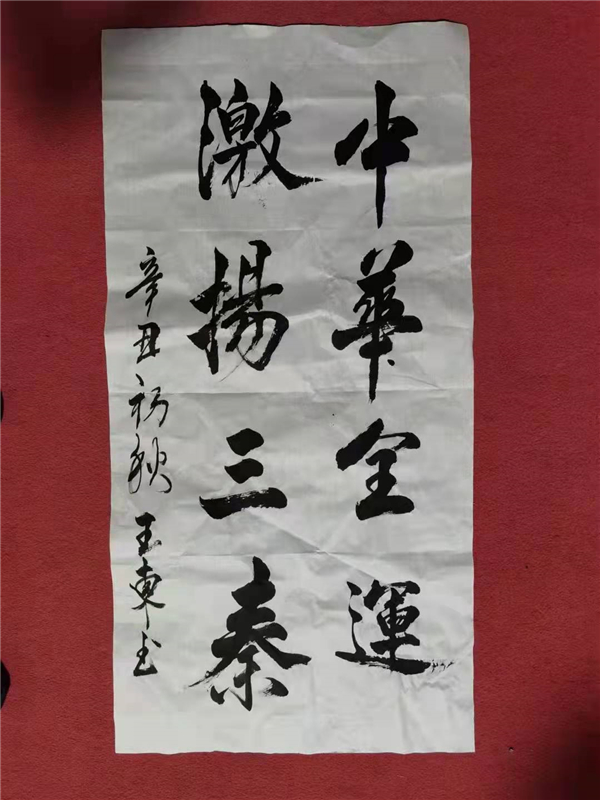 中華全運
激揚三秦
辛丑初秋 玉東书